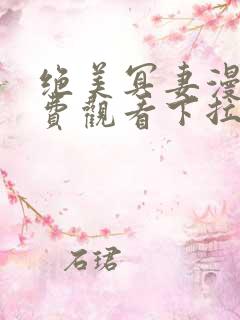 绝美冥妻漫
費觀看下拉
石珺